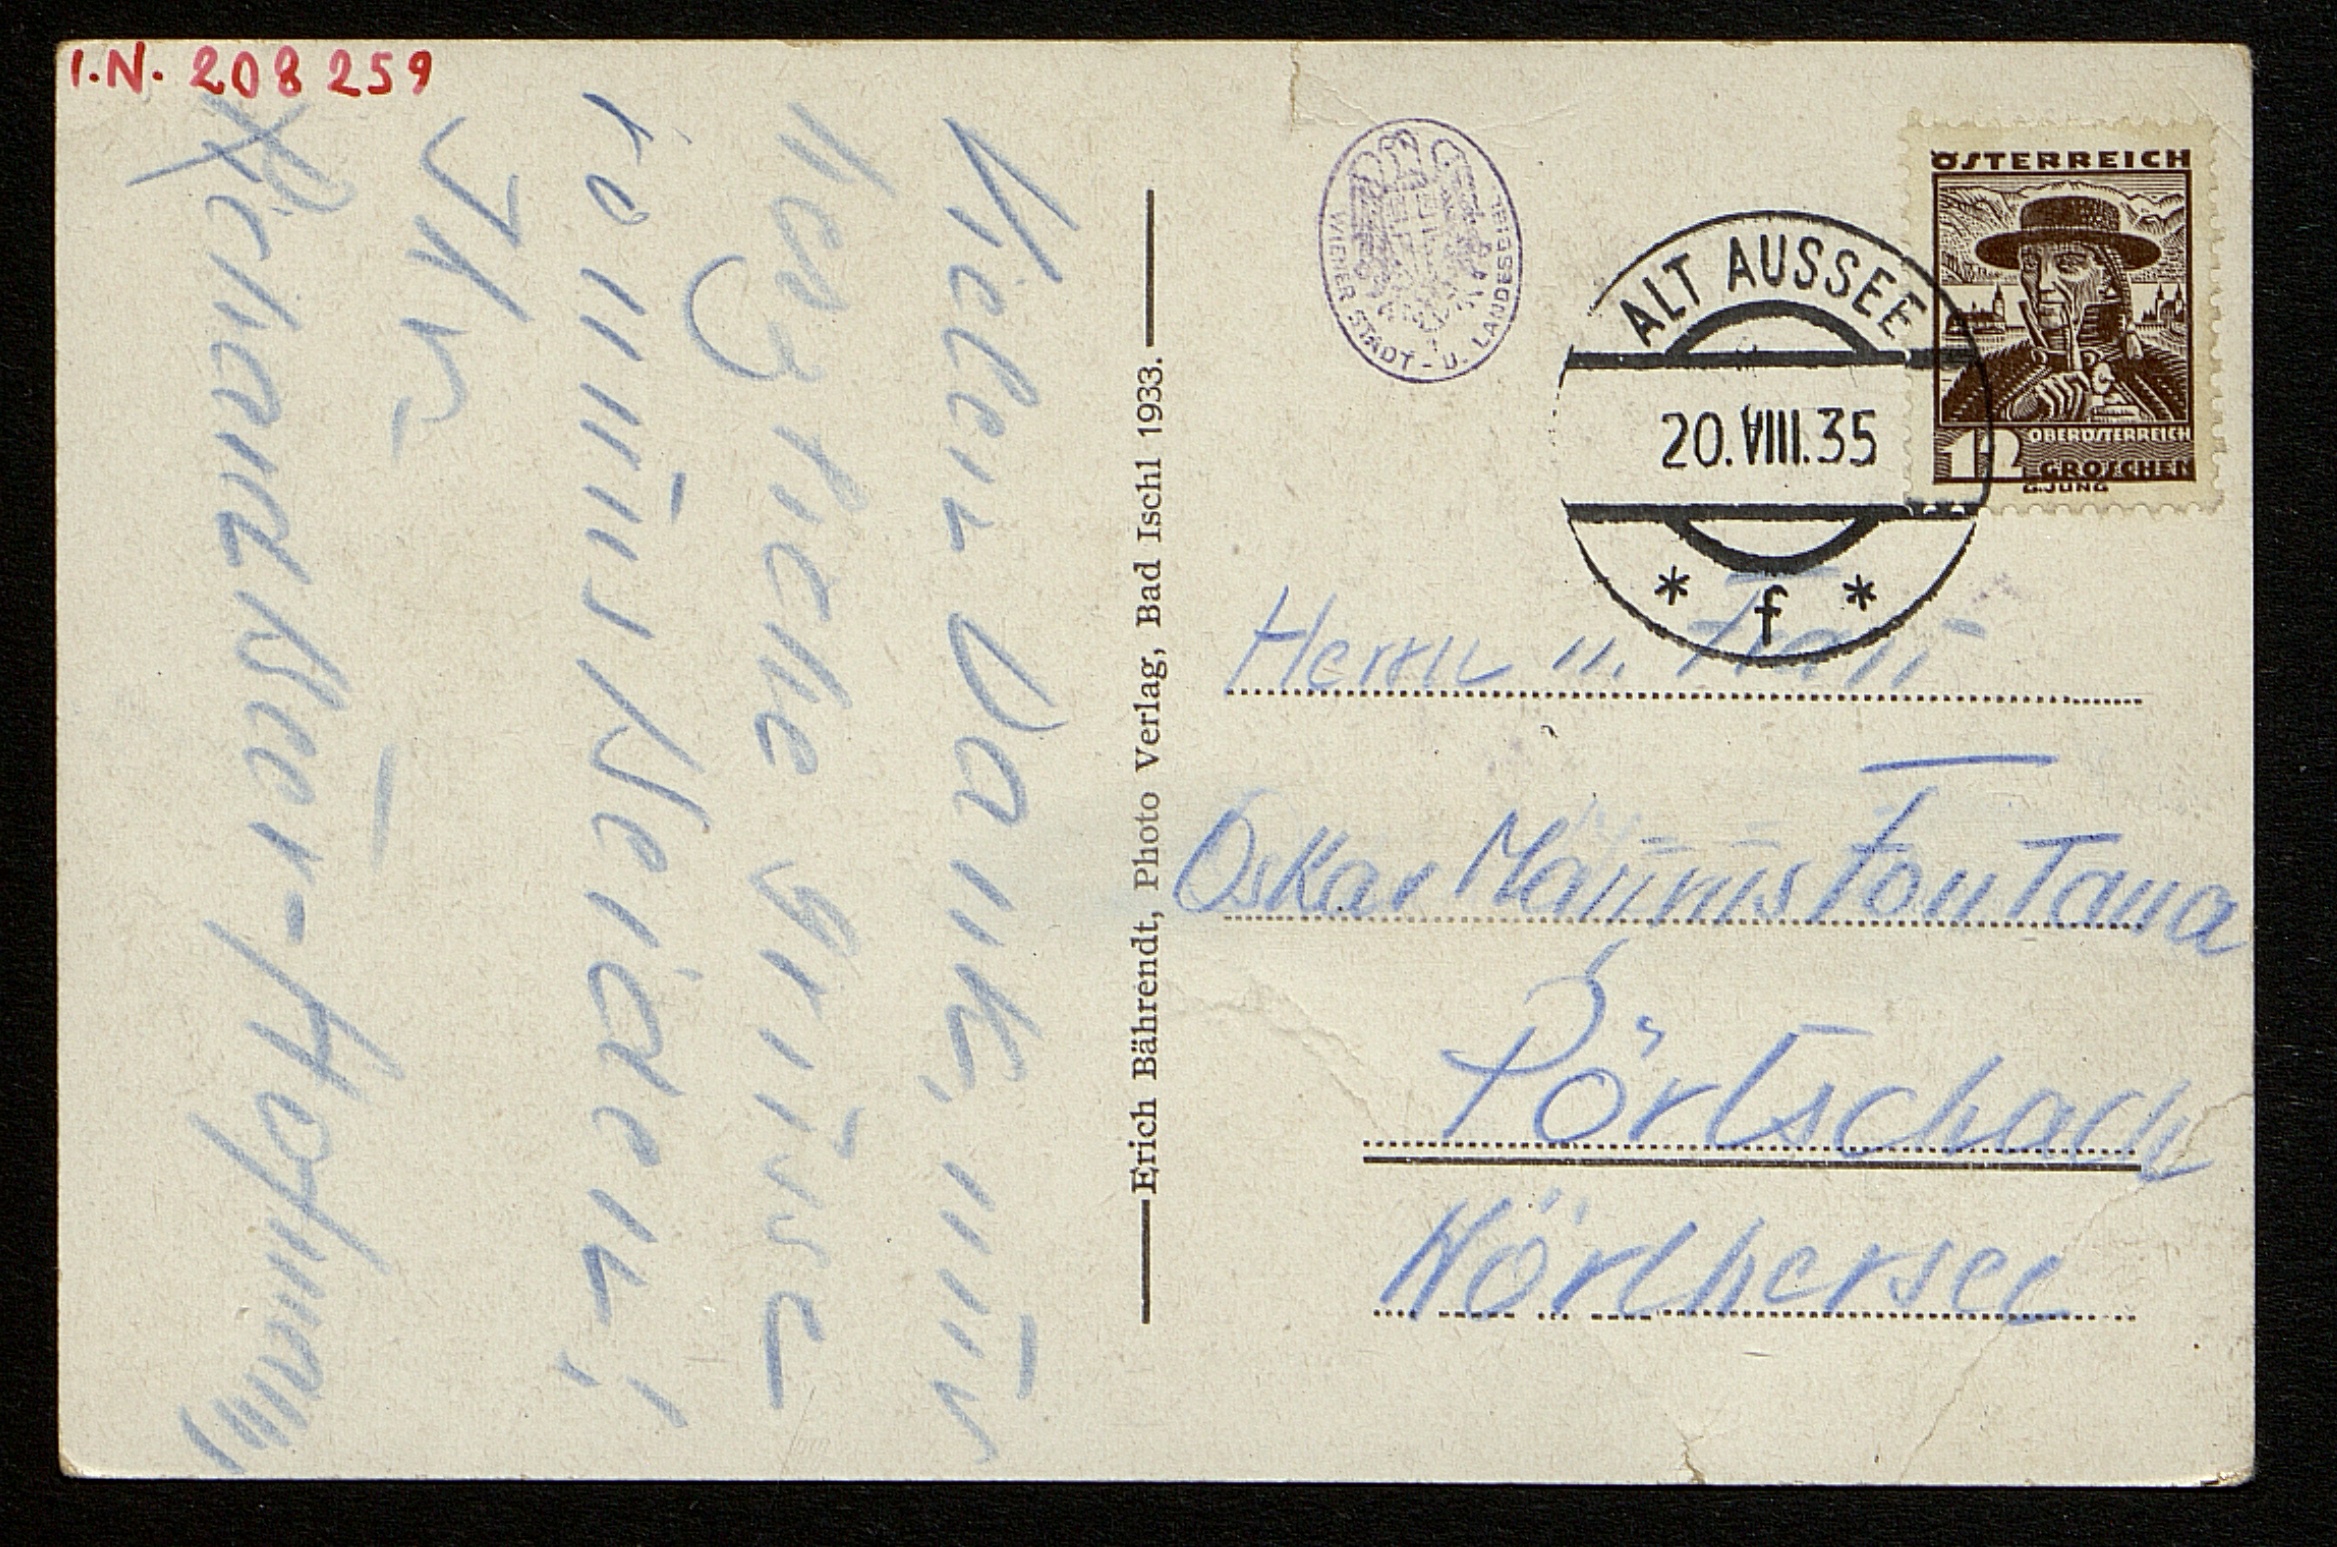 I.N. 208259
Vielen Dank, und
herzliche Grüsse
von uns Beiden!
Ihr
Richard Beer-Hofmann
Erich Bährendt, Photo Verlag, Bad Ischl 1933.
WIENER STADT- U. LANDESBIBL.
ÖSTERREICH
OBERÖSTERREICH
12 GROSCHEN
G.JUNG
ALT AUSSEE
20.VIII.35
* f *
Herrn u. Frau
Oskar Maurus Fontana
Pörtschach
Wörthersee